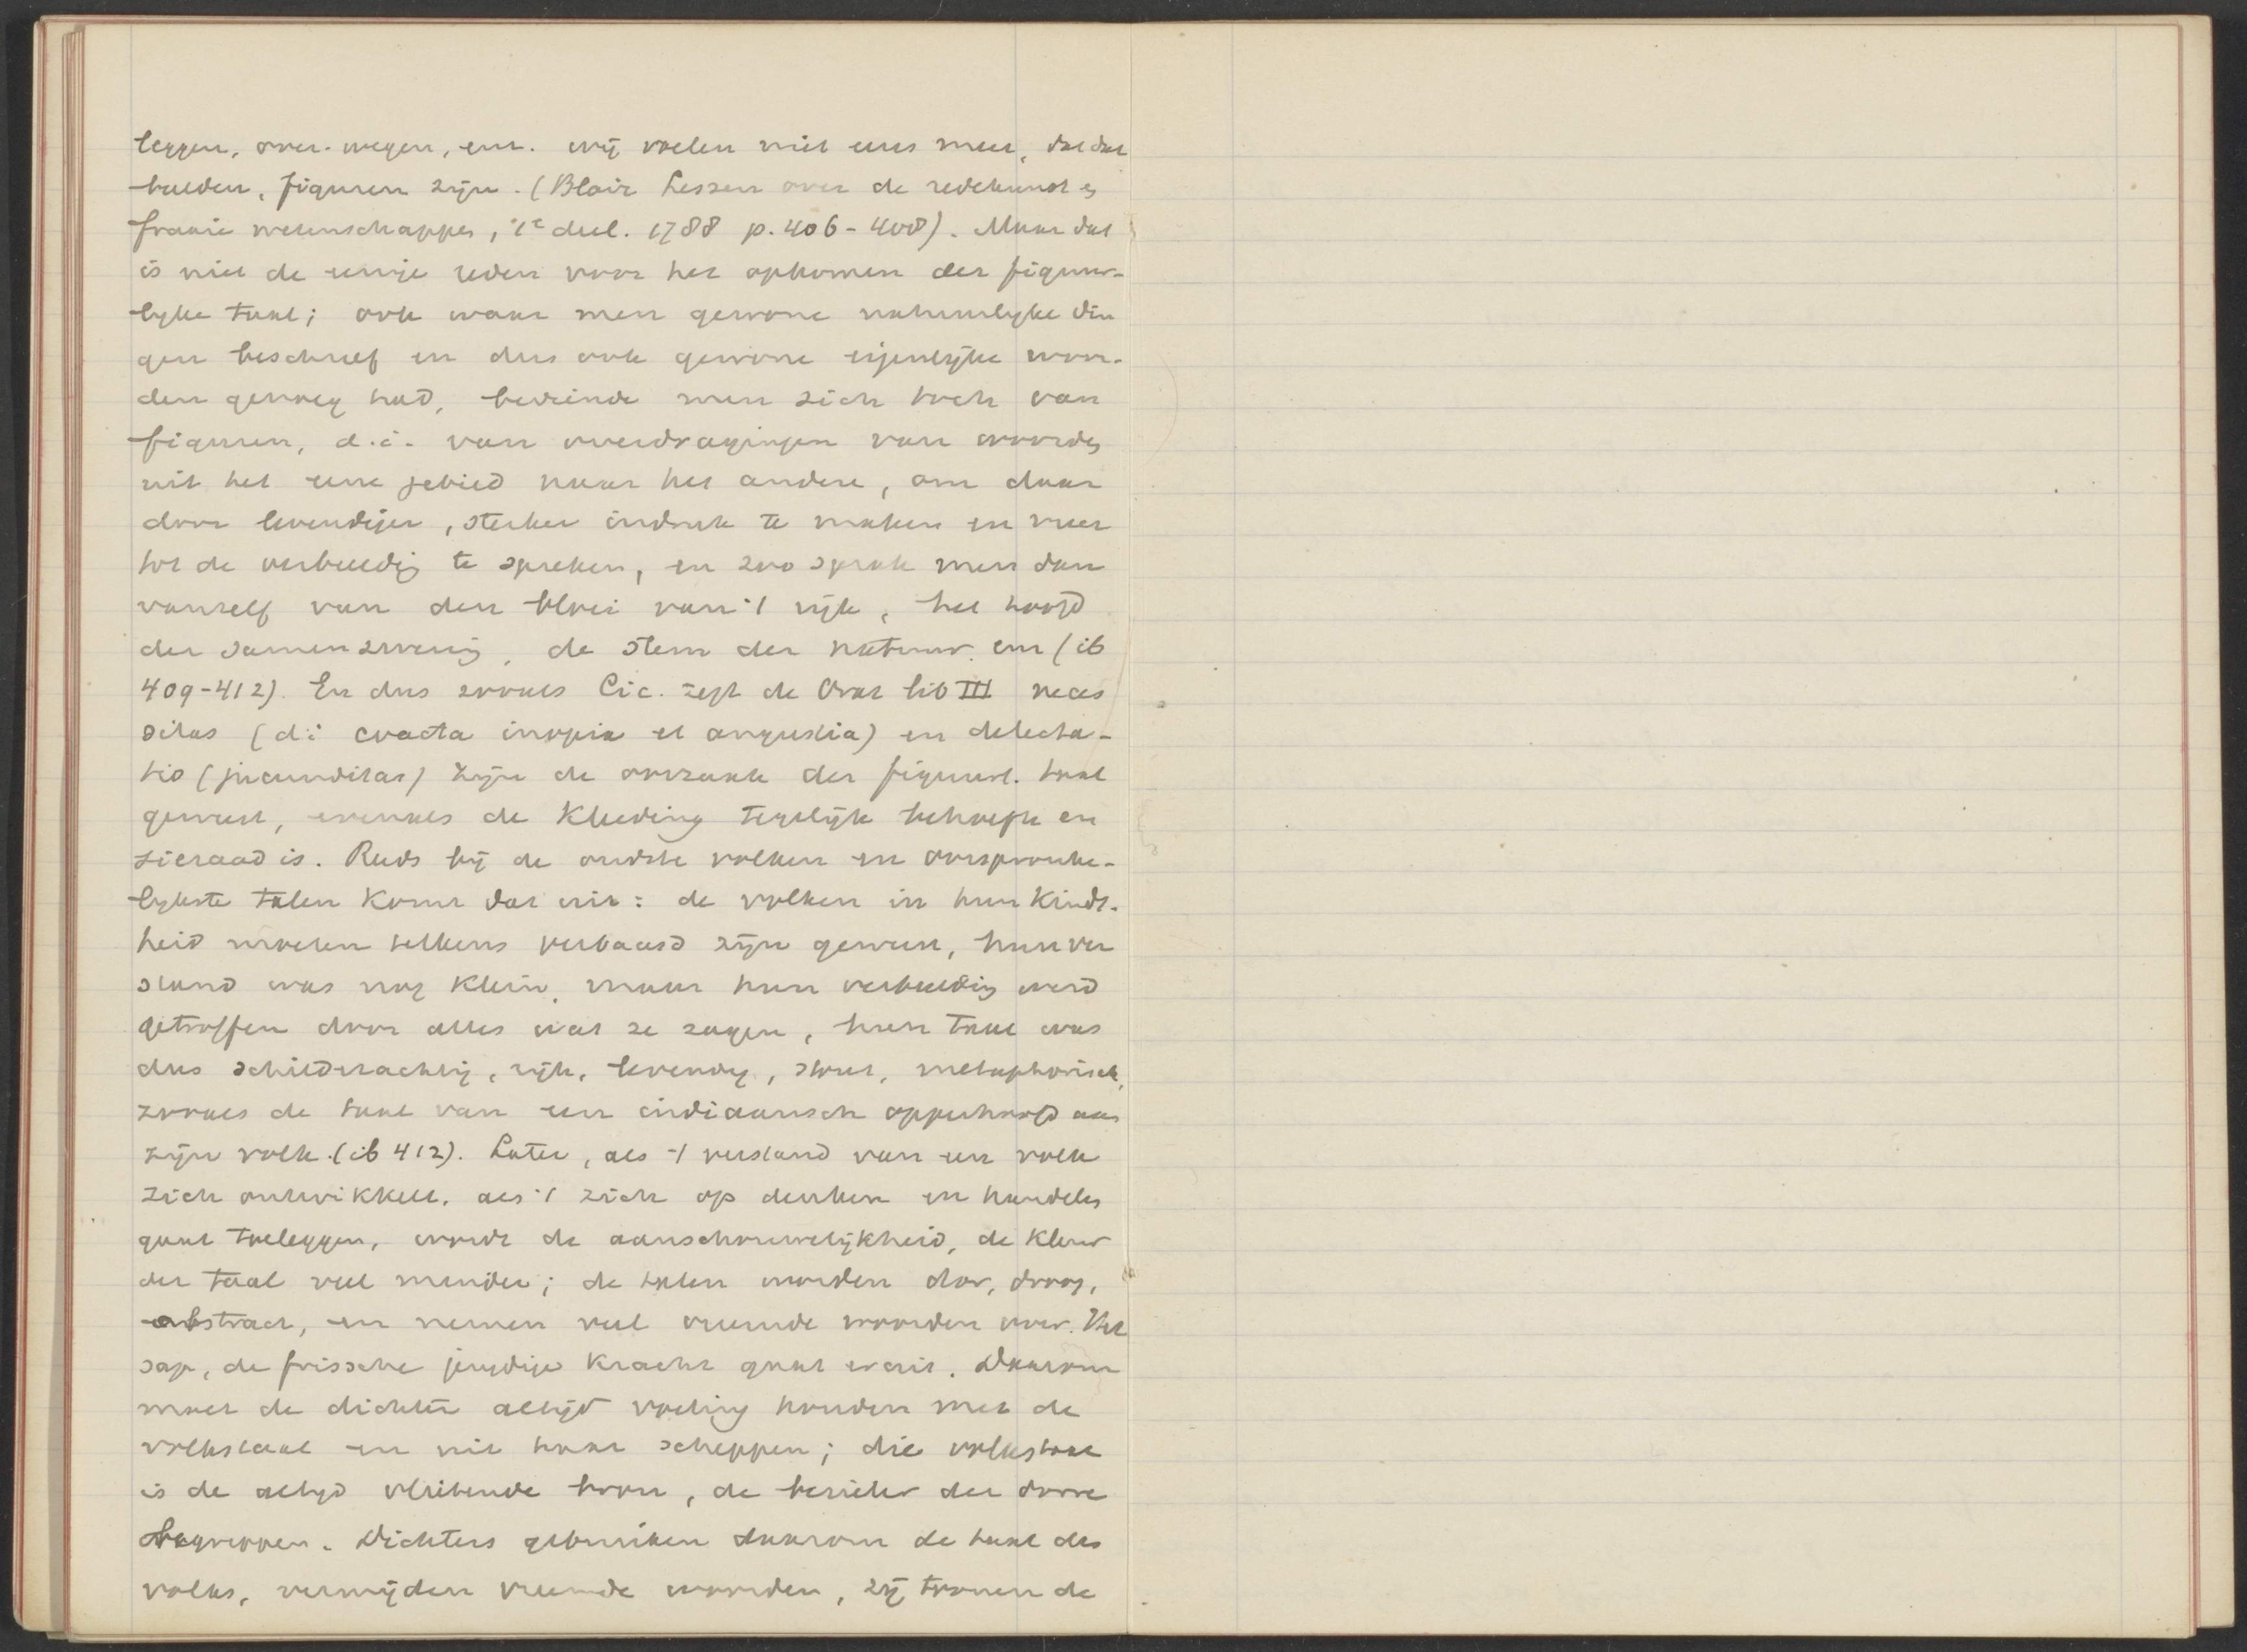 leggen, over-wegen, enz. wij voelen niet eens meer, dat dat
beelden, figuren zijn. (Blair Lessen over de redekunst en
fraaie wetenschappen, 1e deel. 1788 p. 406-408). Maar dat
is niet de eenige reden voor het opkomen der figuur-
lyke taal; ook waar men gewone natuurlyke din
gen beschreef en dus ook gewone eigenlijke woor-
den genoeg had, bediende men zich toch van
figuren, d.i. van overdragingen van woorden
uit het eene gebied naar het andere, om daar
door levendiger, sterker indruk te maken en meer
tot de verbeelding te spreken, en zoo sprak men dan
vanzelf van den bloei van 't rijk, het hoofd
der samenzwering, de stem der natuur enz (ib
409-412). En dus zooals Cic. zegt de Orat lib III neces
sitas (d.i. coacta inopia et angustia) en delecta-
tio (jucunditas) zijn de oorzaak der figuurl. taal
geweest, evenals de kleeding tegelijk behoefte en
sieraad is. Reeds bij de oudste volken en oorspronke-
lykste talen komt dat uit: de volken in hun kinds-
heid moeten telkens verbaasd zijn geweest, hun ver
stand was nog klein, maar hun verbeelding werd
getroffen door alles wat ze zagen, hun taal was
dus schilderachtig, rijk, levendig, stout, metaphorisch,
zooals de taal van een indiaansch opperhoofd aan
zijn volk. (ib 412). Later, als 't verstand van een volk
zich ontwikkelt, als 't zich op denken en handelen
gaat toeleggen, wordt de aanschouwelijkheid, de kleur
der taal veel minder; de talen worden dor, droog,
abstract, en nemen veel vreemde woorden over. Het
sap, de frissche jeugdige kracht gaat eruit. Daarom
moet de dichter altijd voeling houden met de
volkstaal en uit haar scheppen; die volkstaal
is de altyd vlietende bron, de bezieler der dorre
begrippen. Dichters gebruiken daarom de taal des
volks, vermijden vreemde woorden, zij tronen de